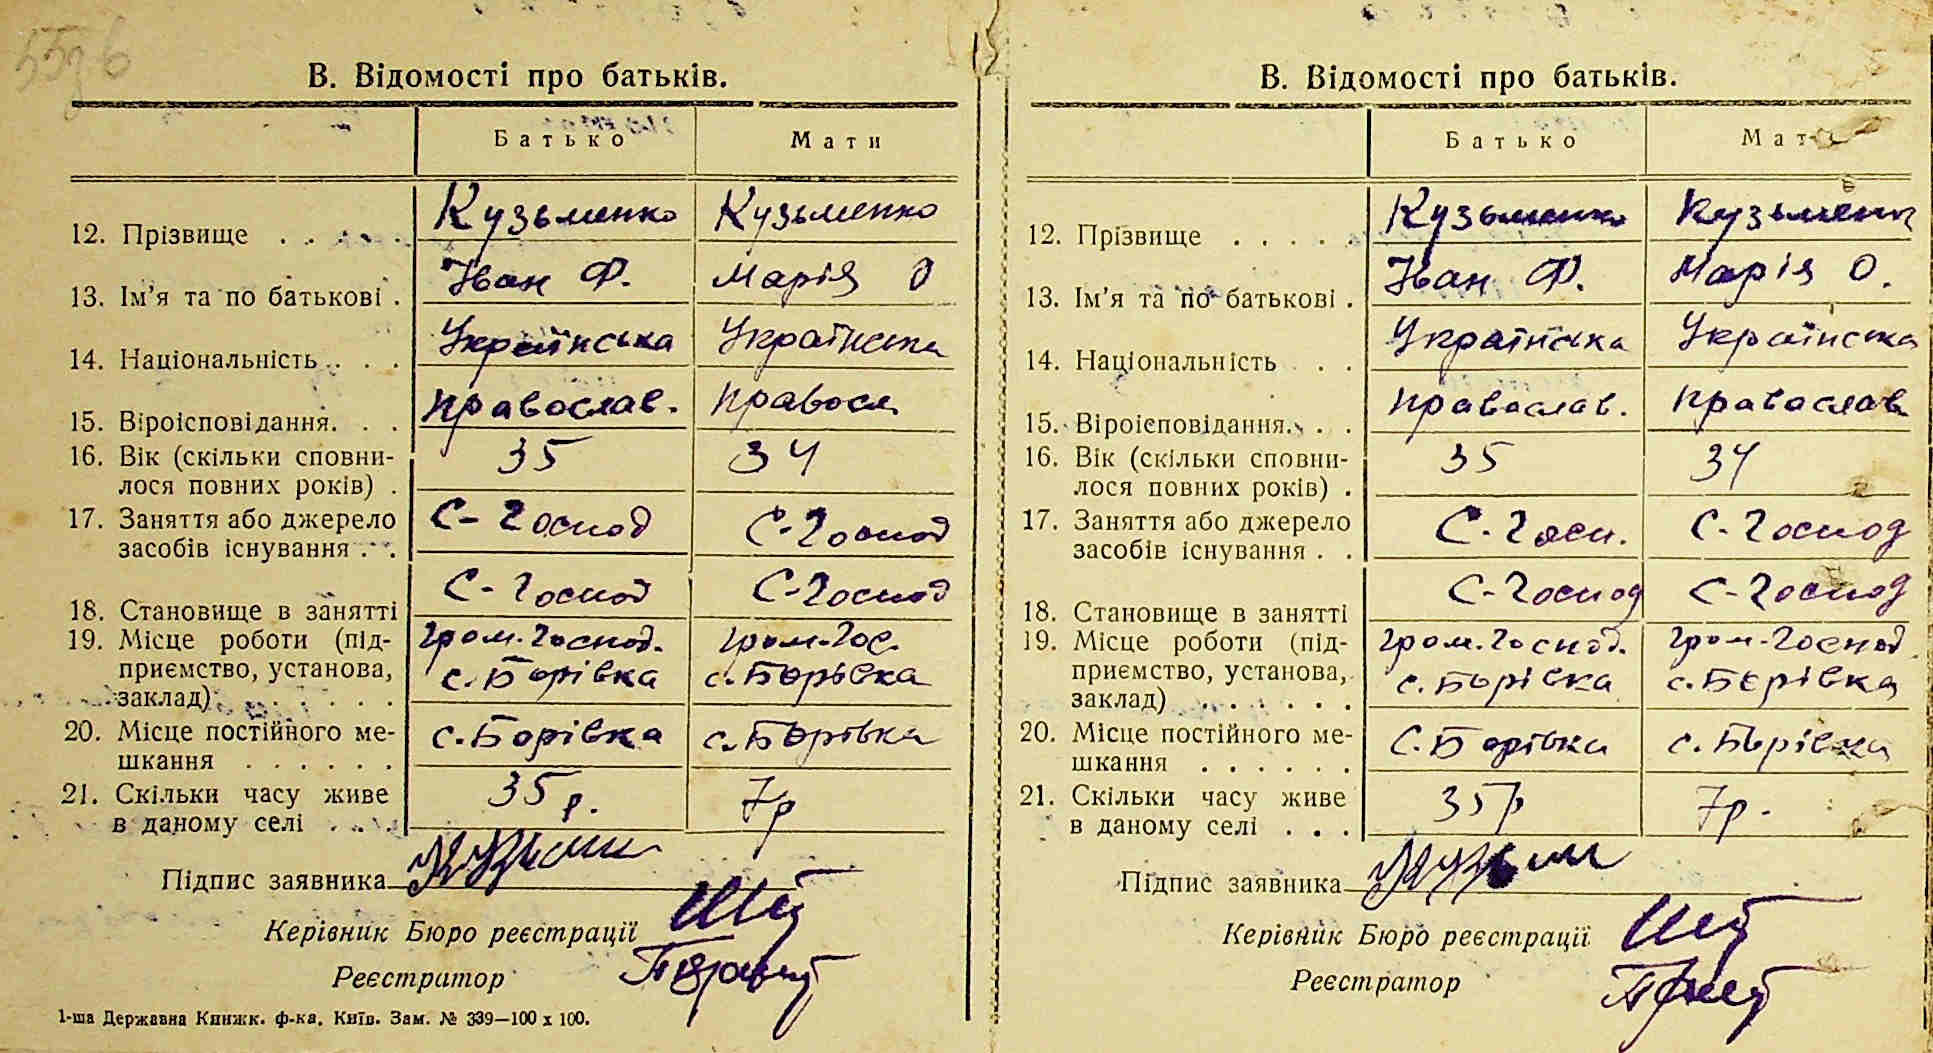 5576
В. Відомості про батьків.
Батько Мати
12. Прізвище . . . . Кузьменко Кузьменко
13. Ім'я та по батькові . Іван Ф. Марія О
14. Національність . . . Українська Українська
15. Віроісповідання. . . православ. правосл
16. Вік (скільки сповни-
лося повних років) . 35 34
17. Заняття або джерело
засобів існування . . С-Господ С-Господ
18. Становище в занятті С-Господ С-Господ
19. Місце роботи (під- гром.Господ. гром.Гос.
приємство, установа, с.Борівка с.Борівка
заклад) . . . . . .
20. Місце постійного ме- с.Борівка с.Борівка
шкання . . . . . .
21. Скільки часу живе 35 р. 7р
в даному селі . . .
Підпис заявника
Керівник Бюро реєстрації
Реєстратор
1-ша Державна Книжк. ф-ка. Київ. Зам. № 339—100 х 100.
В. Відомості про батьків.
Батько Мат
12. Прізвище . . . . . Кузьменко Кузьменк
13. Ім'я та по батькові . Іван Ф. Марія О.
14. Національність . . Українська Українська
15. Віроісповідання. . . православ. православ
16. Вік (скільки сповни-
лося повних років) . 35 34
17. Заняття або джерело
засобів існування . . С-Госп. С-Господ
18. Становище в занятті С-Господ С-Господ
19. Місце роботи (під- гром.Господ. гром-Господ.
приємство, установа, с.Борівка с.Борівка
заклад) . . . . . .
20. Місце постійного ме- с.Борівка с.Борівка
шкання . . . . . .
21. Скільки часу живе 35р 7р.
в даному селі . . .
Підпис заявника
Керівник Бюро реєстрації
Реєстратор